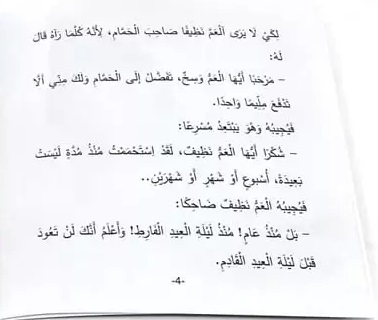 لِكَيْ لَا يَرَى الْعَمَّ نَظِيفًا صَاحِبَ الْحَمَّامِ، لِأَنَّهُ كُلَّمَا رَآهُ قَالَ
لَهُ:
– مَرْحَبًا أَيُّهَا الْعَمُّ وَسِخٌ، تَفَضَّلْ إِلَى الْحَمَّامِ وَلَكَ مِنِّي أَلَّا
تَدْفَعَ مِلِّيمًا وَاحِدًا.
فَيُجِيبُهُ وَهُوَ يَبْتَعِدُ مُسْرِعًا:
– شُكْرًا أَيُّهَا الْعَمُّ نَظِيفٌ، لَقَدْ اِسْتَحْمَمْتُ مُنْذُ مُدَّةٍ لَيْسَتْ
بَعِيدَةً، أُسْبُوعٍ أَوْ شَهْرٍ أَوْ شَهْرَيْنِ..
فَيُجِيبُهُ الْعَمُّ نَظِيفٌ ضَاحِكًا:
– بَلْ مُنْذُ عَامٍ! مُنْذُ لَيْلَةِ الْعِيدِ الْفَارِطِ! وَأَعْلَمُ أَنَّكَ لَنْ تَعُودَ
قَبْلَ لَيْلَةِ الْعِيدِ الْقَادِمِ.
-4-